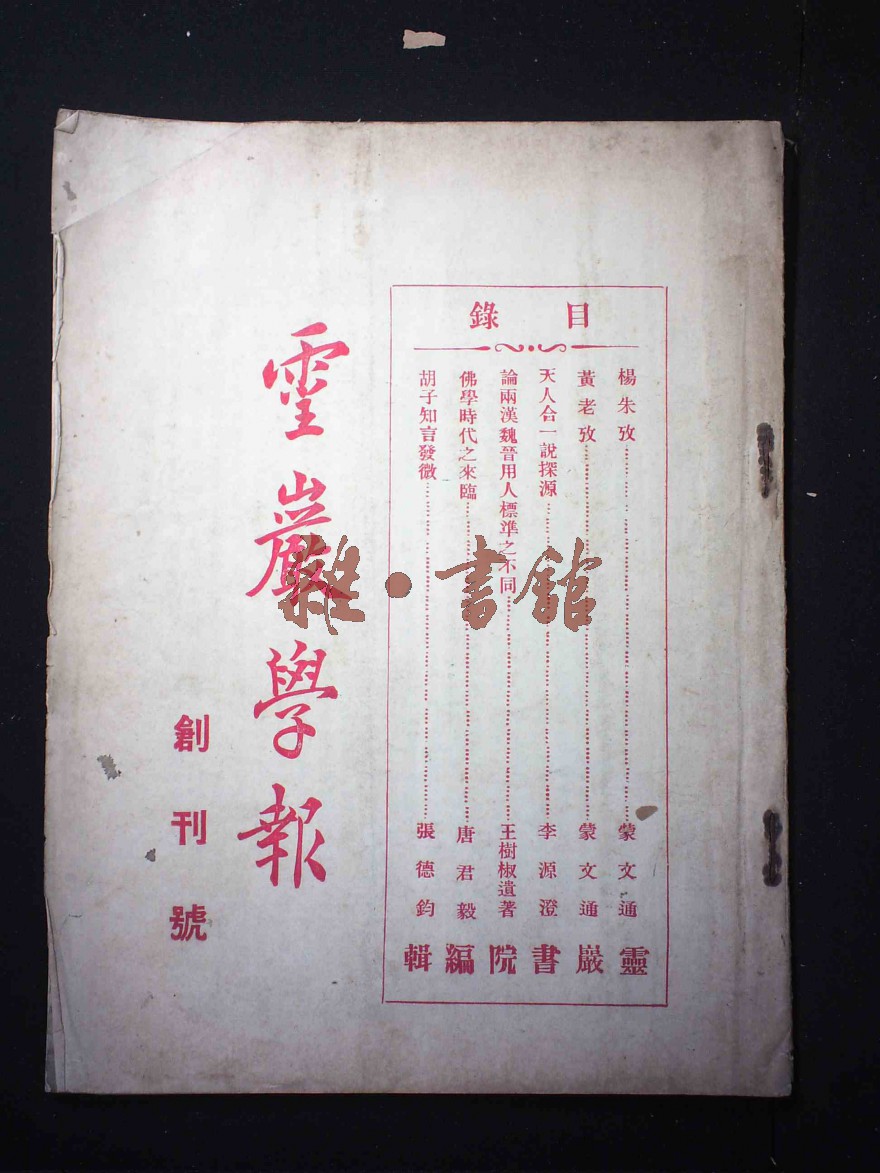 目錄
楊朱攷 蒙文通
黃老攷 蒙文通
天人合一說探源 李源澄
論兩漢魏晉用人標準之不同 王樹椒遺著
佛學時代之來臨 唐君毅
胡子知言發微 張德鈞
靈巖書院編輯
靈巖學報
創刊號
雜·書館